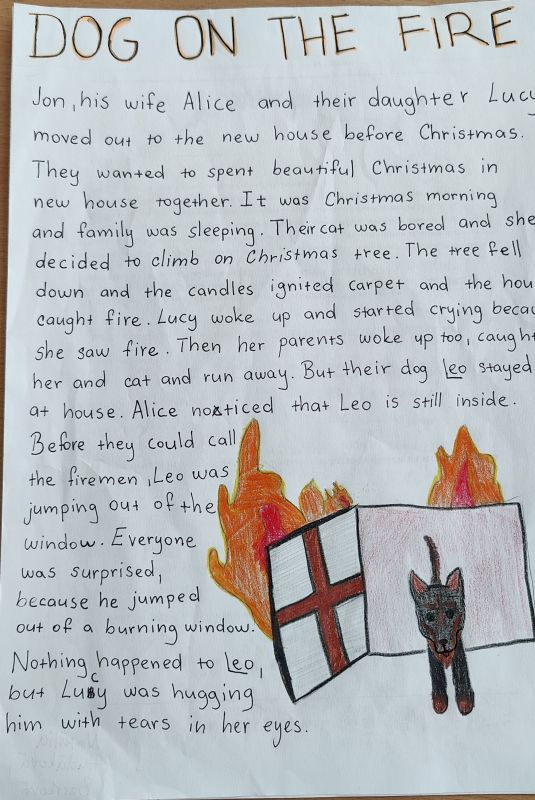 DOG ON THE FIRE
Jon, his wife Alice and their daughter Lucy
moved out to the new house before Christmas.
They wanted to spent beautiful Christmas in
new house together. It was Christmas morning
and family was sleeping. Their cat was bored and she
decided to climb on Christmas tree. The tree fell
down and the candles ignited carpet and the hou
caught fire. Lucy woke up and started crying becau
she saw fire. Then her parents woke up too, caught
her and cat and run away. But their dog Leo stayed
at house. Alice noticed that Leo is still inside.
Before they could call
the firemen, Leo was
jumping out of the
window. Everyone
was surprised,
because he jumped
out of a burning window.
Nothing happened to Leo,
but Lucy was hugging
him with tears in her eyes.